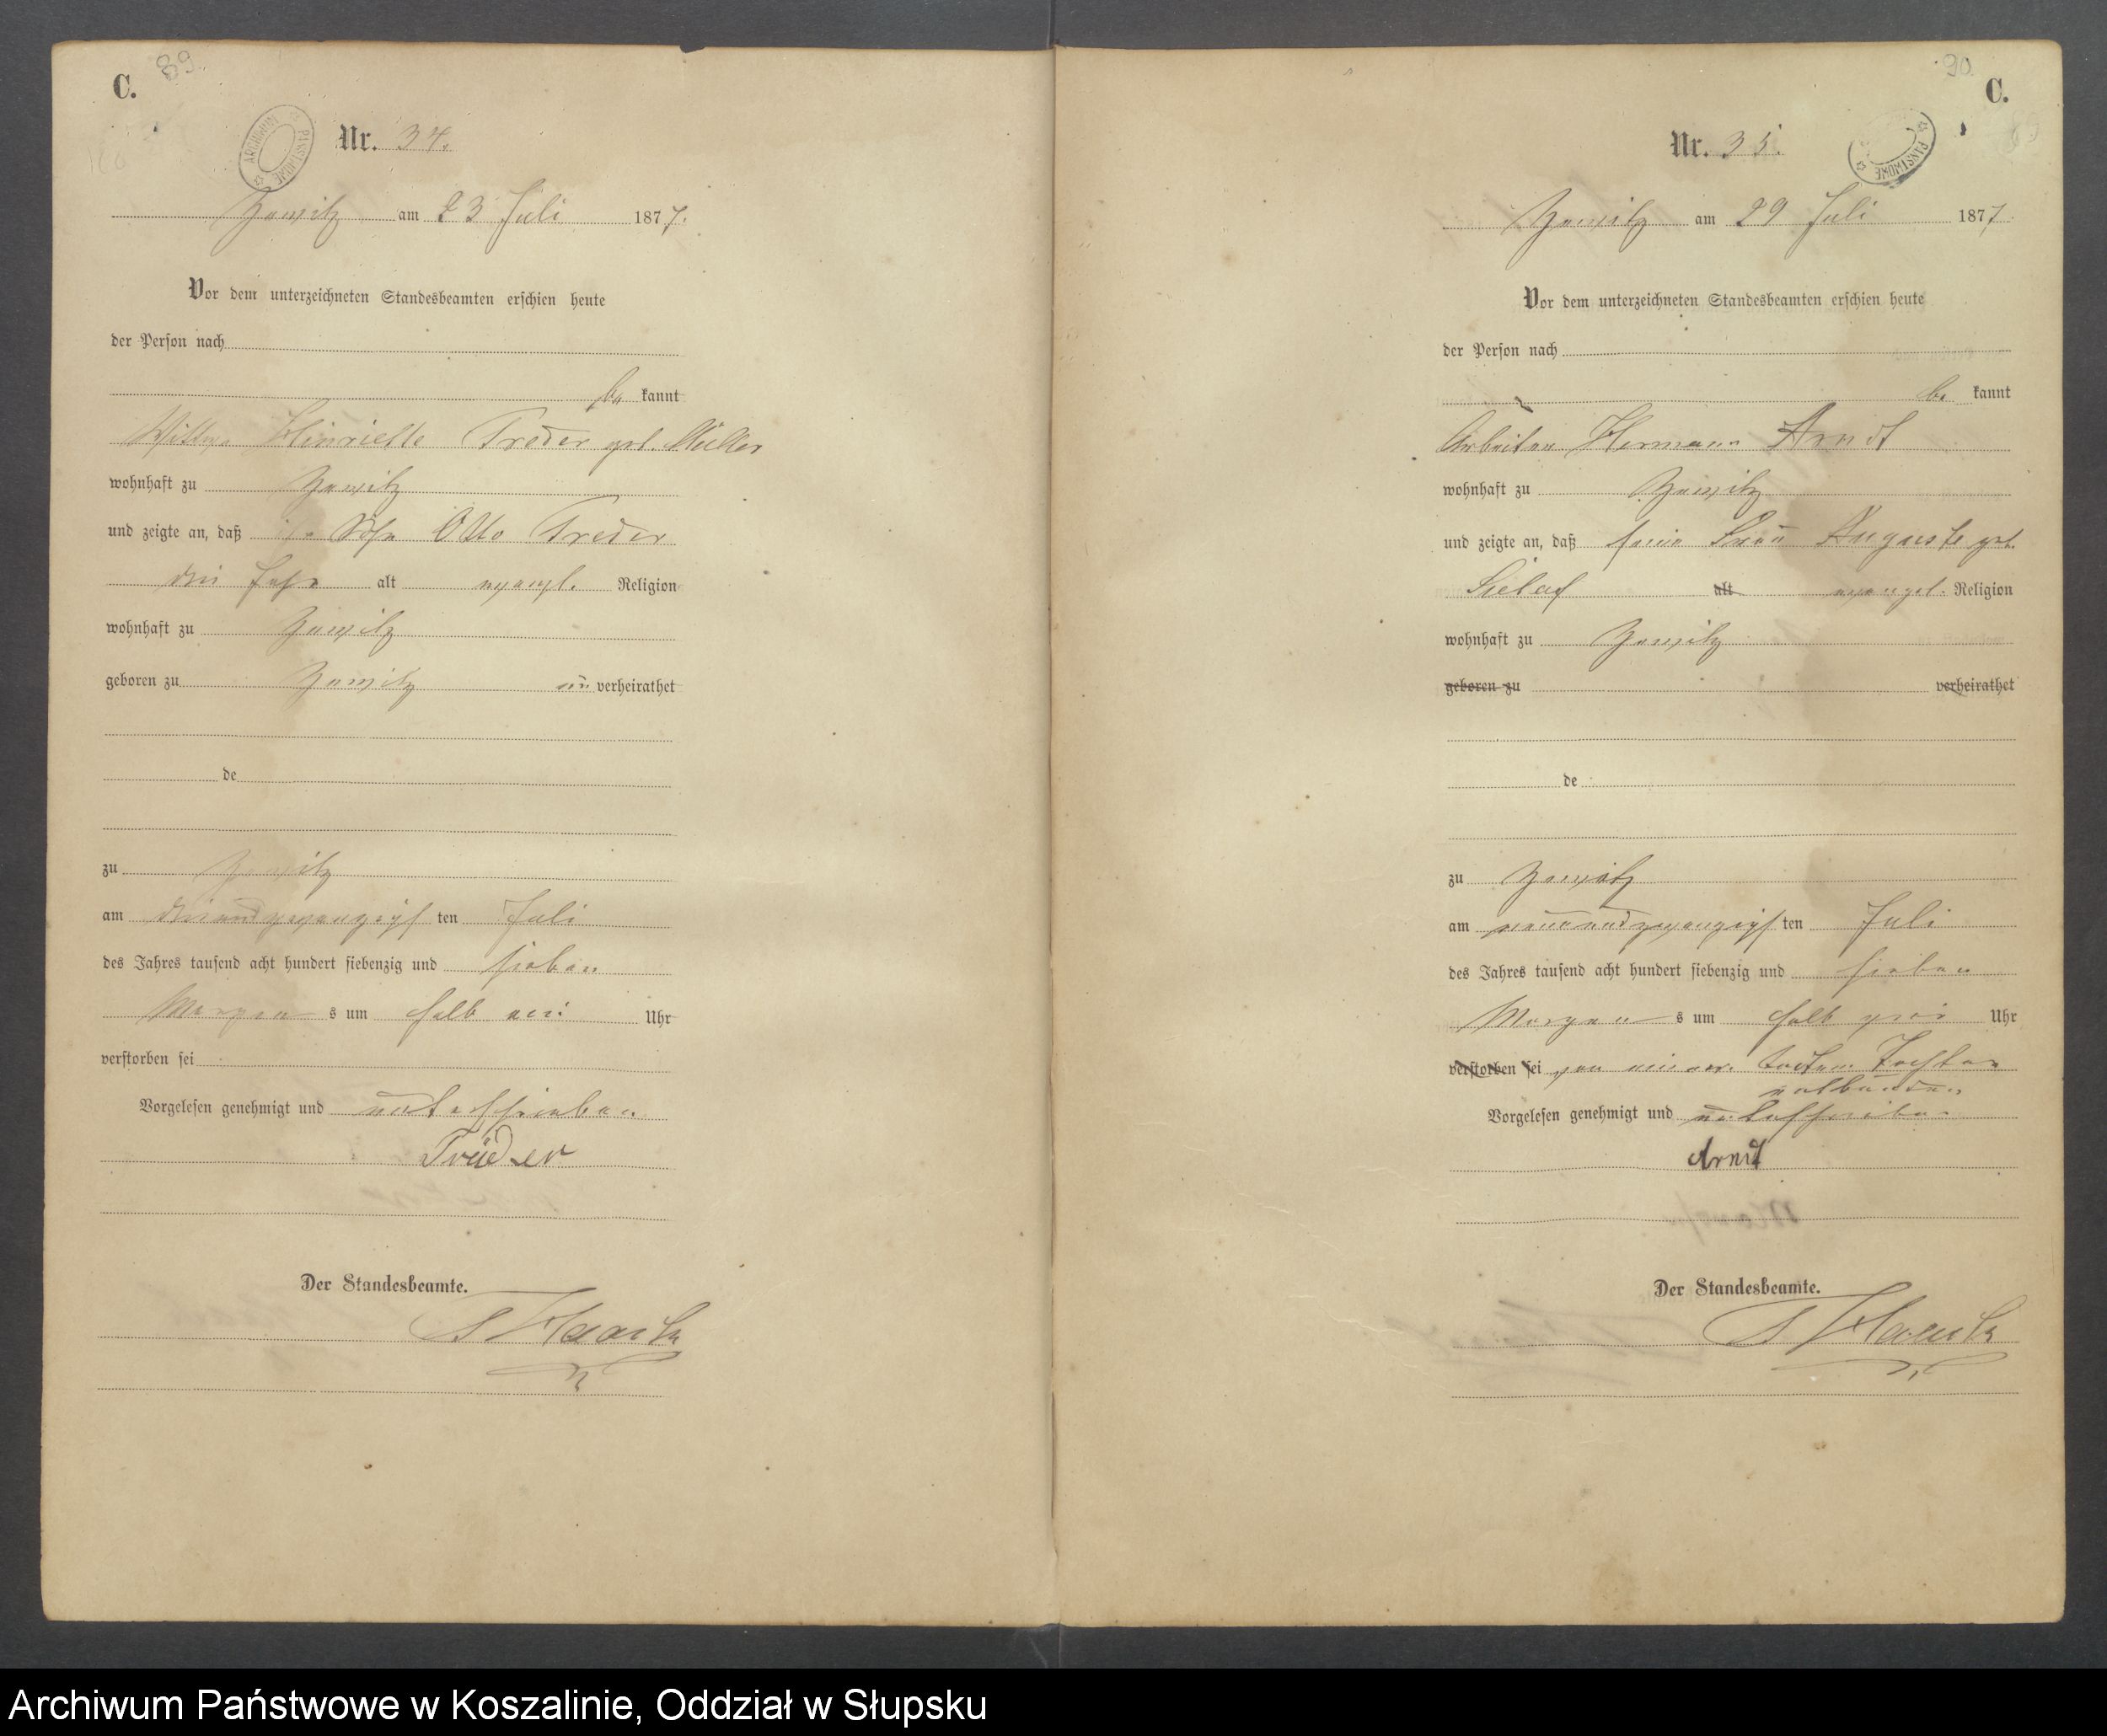 C.
89.
Nr. 34.
ARCHIWUM PAŃSTWOWE
Zewitz am 23 Juli 1877.
Vor dem unterzeichneten Standesbeamten erschien heute
der Person nach
be kannt
Wittwe Henriette Treder geb. Müller
wohnhaft zu Zewitz
und zeigte an, daß ihr Sohn Otto Treder
drei Jahr alt evangl. Religion
wohnhaft zu Zewitz
geboren zu Zewitz un verheirathet
de
zu Zewitz
am dreiundzwanzigsten Juli
des Jahres tausend acht hundert siebenzig und sieben
Morgens um halb Uhr
verstorben sei
Vorgelesen genehmigt und unterschrieben
Treder
Der Standesbeamte.
90.
C.
Nr. 35.
PAŃSTWOWE
Zewitz am 29 Juli 1877
Vor dem unterzeichneten Standesbeamten erschien heute
der Person nach
be kannt
Arbeiter Hermann Arndt
wohnhaft zu Zewitz
und zeigte an, daß seine Frau Auguste geb.
alt evangel. Religion
wohnhaft zu Zewitz
geboren zu verheirathet
de
zu Zewitz
am neunundzwanzigsten Juli
des Jahres tausend acht hundert siebenzig und sieben
Morgens um halb zwei Uhr
verstorben sei von einer todten Tochter
entbunden
Vorgelesen genehmigt und unterschrieben
Arndt
Der Standesbeamte.
Archiwum Państwowe w Koszalinie, Oddział w Słupsku